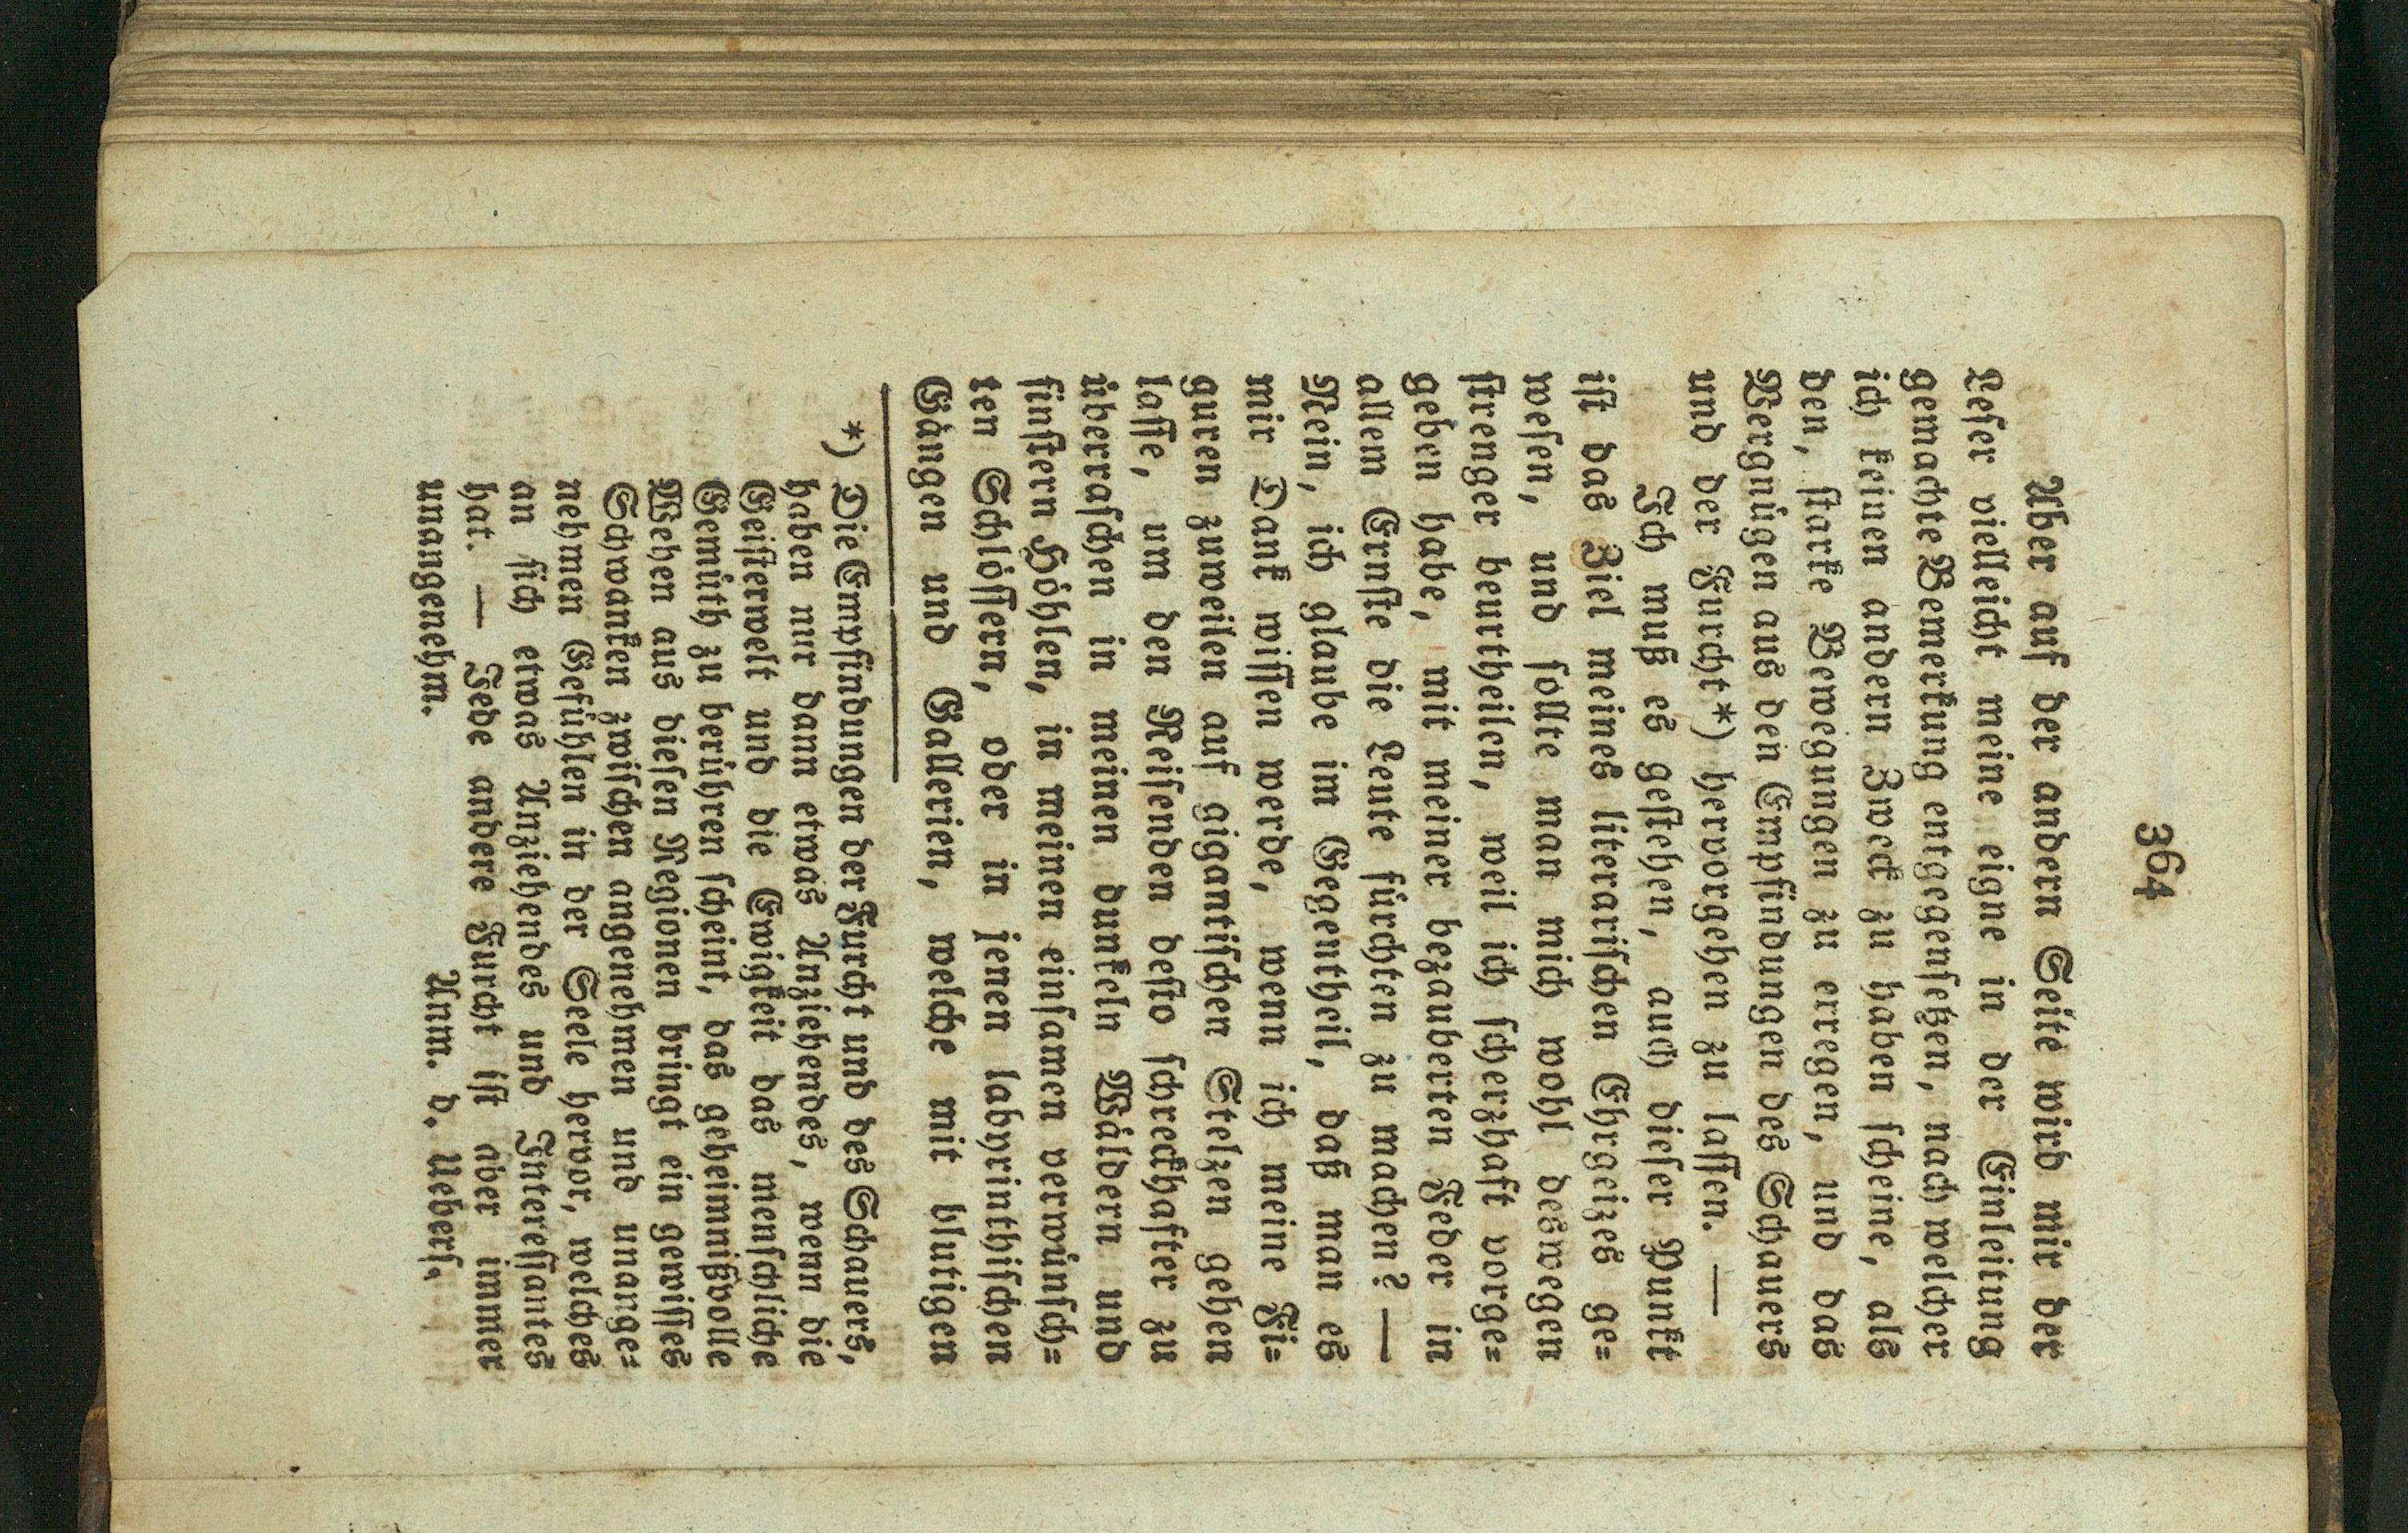 364
Aber auf der andern Seite wird mir der
Leſer vielleicht meine eigne in der Einleitung
gemachte Bemerkung entgegenſetzen, nach welcher
ich keinen andern Zweck zu haben ſcheine, als
den, ſtarke Bewegungen zu erregen, und das
Vergnügen aus den Empfindungen des Schauers
und der Furcht*) hervorgehen zu laſſen. —
Ich muß es geſtehen, auch dieſer Punkt
iſt das Ziel meines literariſchen Ehrgeizes ge=
weſen, und ſollte man mich wohl deswegen
ſtrenger beurtheilen, weil ich ſcherzhaft vorge=
geben habe, mit meiner bezauberten Feder in
allem Ernſte die Leute fürchten zu machen? —
Nein, ich glaube im Gegentheil, daß man es
mir Dank wiſſen werde, wenn ich meine Fi=
guren zuweilen auf gigantiſchen Stelzen gehen
laſſe, um den Reiſenden deſto ſchreckhafter zu
überraſchen in meinen dunkeln Wäldern und
finſtern Höhlen, in meinen einſamen verwünſch=
ten Schlöſſern, oder in jenen labyrinthiſchen
Gängen und Gallerien, welche mit blutigen
*) Die Empfindungen der Furcht und des Schauers,
haben nur dann etwas Anziehendes, wenn die
Geiſterwelt und die Ewigkeit das menſchliche
Gemüth zu berühren ſcheint, das geheimnißvolle
Wehen aus dieſen Regionen bringt ein gewiſſes
Schwanken zwiſchen angenehmen und unange=
nehmen Gefühlen in der Seele hervor, welches
an ſich etwas Anziehendes und Intereſſantes
hat. — Jede andere Furcht iſt aber immer
unangenehm. Anm. d. Ueberſ.